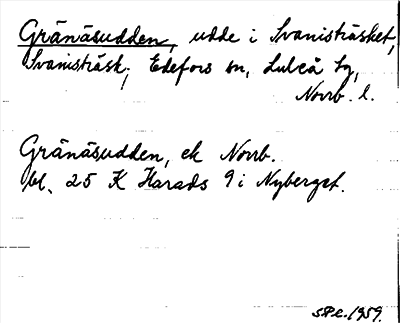 Gränäsudden, udde i Svanisträsket,
Svanisträsk, Edefors sn, Luleå tg,
Norrb. l.
Gränäsudden, ek Norrb.
bl. 25 K Harads 9 i Nyberget.
1959.